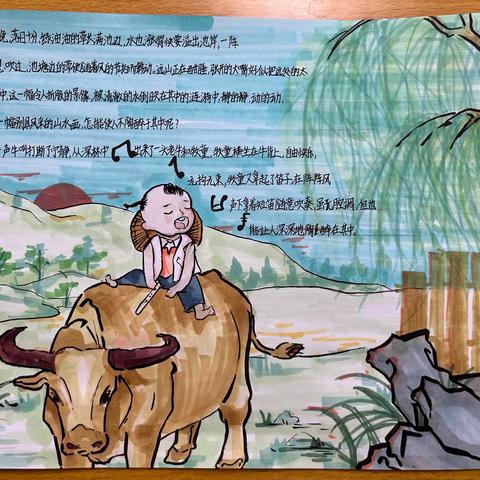 晚，落日十分，绿油油的草长满池边，水也涨得快要溢出池岸，一阵
吹过，池塘边的草便随着风的节拍而舞动。远山正在酣睡，张开的大嘴好似把远处的太
中，这一幅令人折服的景像，被清澈的水倒映在其中的涟漪中，静的静，动的动。
一幅别具风采的山水画，怎能使人不陶醉于其中呢？
一声牛叫打断了宁静，从深林中出来了一头老牛和牧童，牧童横坐在牛背上，自由快乐，
无拘无束，牧童又拿起了笛子，在阵阵风
声下拿着短笛随意吹奏，虽无腔调，但也
能让人深深地陶醉在其中。